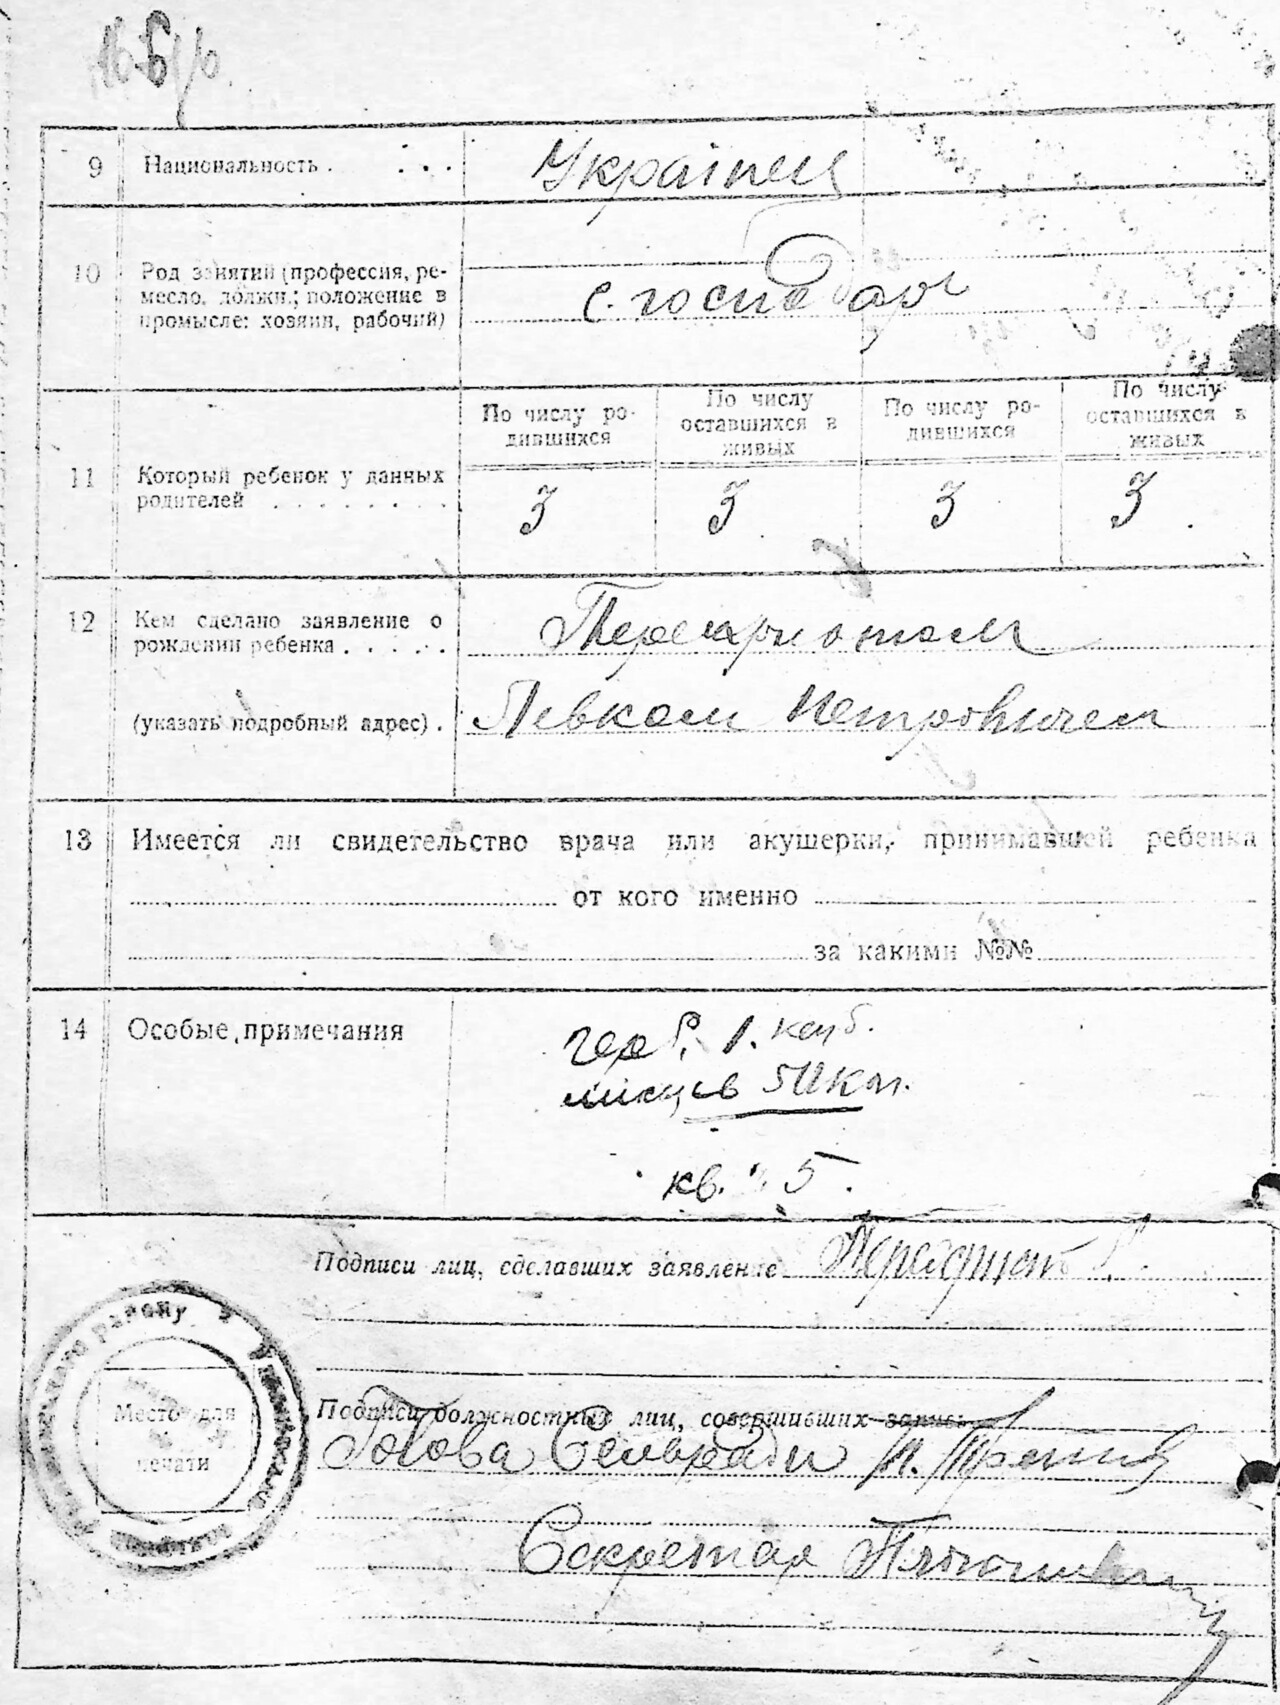 9 Национальность . . . .
Українец
10 Род занятий (профессия, ре-
месло, должн.; положение в
промысле: хозяин, рабочий)
с. господар
По числу ро-
дившихся
По числу
оставшихся в
живых
По числу ро-
дившихся
По числу
оставшихся в
живых
11 Который ребенок у данных
родителей . . . . . . . .
3 3 3 3
12 Кем сделано заявление о
рождении ребенка . . . . .
(указать подробный адрес) .
Левком Петровичем
13 Имеется ли свидетельство врача или акушерки, принимавшей ребенка
от кого именно
за какими №№
14 Особые примечания
герб. 1. карб.
50 коп.
кв. 5.
Подписи лиц, сделавших заявление
Подписи должностных лиц, совершивших запись
Голова Сельради
Секретар
Место для
печати
району